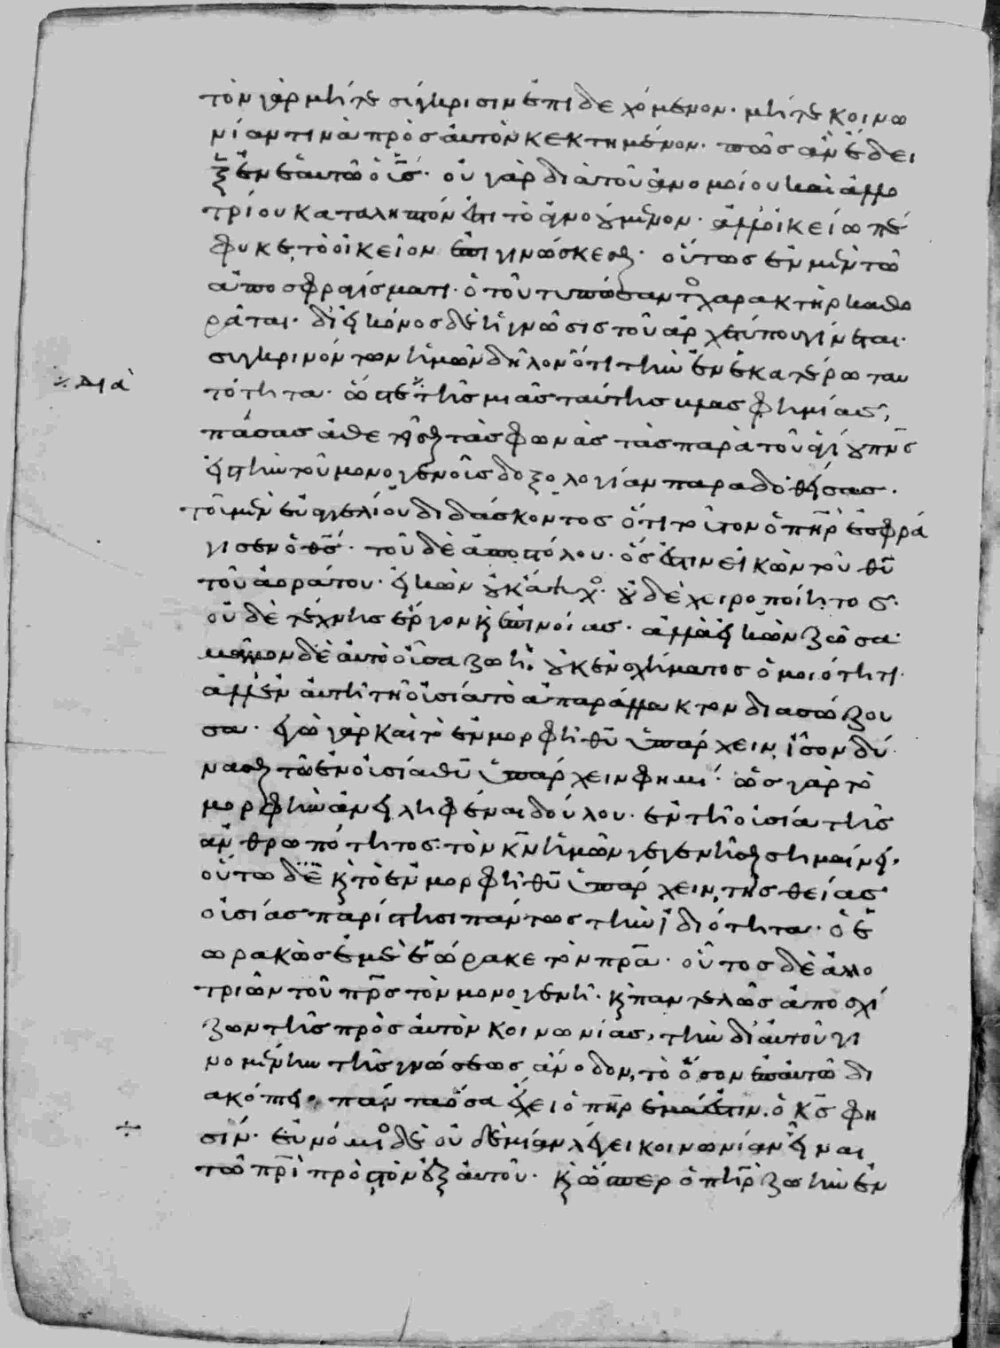 τὸν γὰρ μήτε σύγκρισιν ἐπιδεχόμενον· μήτε κοινω
νίαν τινὰ πρὸς αὐτὸν κεκτημένον· πῶς ἂν ἔδει
ξεν ἑαυτῶ ὁ υἱός· οὐ γὰρ διὰ τοῦ ἀνομοίου καὶ ἀλλο
τρίου καταληπτόν ἐστι τὸ ἀγνοούμενον· ἀλλ' οἰκείω πέ
φυκε τὸ οἰκεῖον ἐπιγινώσκεσθαι· οὕτως ἐν μὲν τῶ
ἀποσφραγίσματι· ὁ τοῦ τυπώσαντος χαρακτὴρ καθο
ρᾶται· δι' εἰκόνος δὲ ἡ γνῶσις τοῦ ἀρχετύπου γίνεται·
συγκρινόντων ἡμῶν δηλονότι τὴν ἐν ἑκατέρω ταυ
⁒ διὰ
τότητα· ὥστε τῆς μιᾶς ταύτης βλασφημίας,
πάσας ἀθετῆσθαι τὰς φωνὰς τὰς παρὰ τοῦ ἁγίου πνς
εἰς τὴν τοῦ μονογενοῦς δοξολογίαν παραδοθείσας·
τοῦ μὲν εὐαγγελίου διδάσκοντος ὅτι τοῦτον ὁ πηρ ἐσφρά
γισεν ὁ θς· τοῦ δὲ ἀποστόλου· ὅς ἐστιν εἰκὼν τοῦ θυ
τοῦ ἀοράτου· εἰκὼν οὐκ ἄψυχος· οὐδὲ χειροποίητος·
οὐδὲ τέχνης ἔργον κ ἐπινοίας· ἀλλ' εἰκὼν ζῶσα·
μᾶλλον δὲ αὐτοοῦσα ζωή· οὐκ ἐν σχήματος ὁμοιότητι·
ἀλλ' ἐν αὐτῆ τῆ οὐσία τὸ ἀπαράλλακτον διασώζου
σα· ἐγὼ γὰρ καὶ τὸ ἐν μορφῆ θυ ὑπάρχειν, ἴσον δύ
νασθαι τῶ ἐν οὐσία θυ ὑπάρχειν φημί· ὡς γὰρ τὸ
μορφὴν ἀνειληφέναι δούλου· ἐν τῆ οὐσία τῆς
ἀνθρωπότητος τὸν κν ἡμῶν γεγενῆσθαι σημαίνει·
οὕτω δὲ κ τὸ ἐν μορφῆ θυ ὑπάρχειν, τῆς θείας
οὐσίας παρίστησι πάντως τὴν ἰδιότητα· ὁ ἑ
ωρακὼς ἐμὲ ἑώρακε τὸν πρα· οὗτος δὲ ἀλλο
τριῶν τοῦ πρς τὸν μονογενῆ· κ παντελῶς ἀποσχί
ζων τῆς πρὸς αὐτὸν κοινωνίας, τὴν δι' αὐτοῦ γι
νομένην τῆς γνώσεως ἄνοδον, τὸ ὅσον ἐπ' αὐτῶ δι
ακόπτει· πάντα ὅσα ἔχει ὁ πηρ ἐμά ἐστιν· ὁ κς φη
÷
σίν· εὐνόμιος δὲ οὐδεμίαν λέγει κοινωνίαν εἶναι
τῶ πρι πρὸς τὸν ἐξ αὐτοῦ· κ ὥσπερ ὁ πηρ ζωὴν ἐν